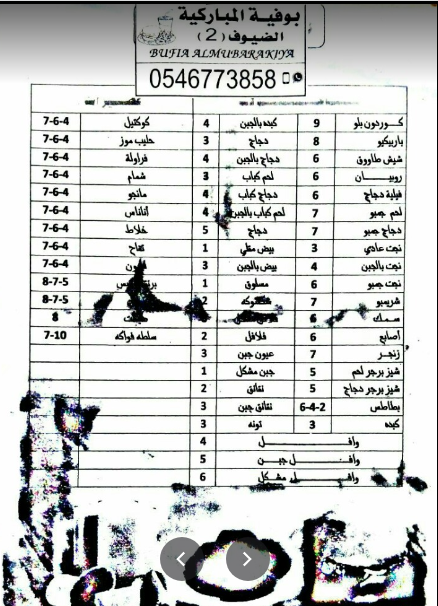 بوفية المباركية
الضيوف (2)
BUFIA ALMUBARAKIYA
0546773858
كوردون بلو 9 كبده بالجبن 4 كوكتيل 7-6-4
باربيكيو 8 دجاج 3 حليب موز 7-6-4
شيش طاووق 6 دجاج بالجبن 4 فراولة 7-6-4
روبيان 6 لحم كباب 3 شمام 7-6-4
فيلية دجاج 6 دجاج كباب 4 مانجو 7-6-4
لحم جمبو 7 لحم كباب بالجبن 4 أناناس 7-6-4
دجاج جمبو 7 دجاج 5 خلاط 7-6-4
نجت عادي 3 بيض مقلي 1 تفاح 7-6-4
نجت بالجبن 4 بيض بالجبن 3 7-6-4
نجت جمبو 6 مسلوق 1 8-7-5
شريمبو 7 2 8-7-5
سمك 6 8
أصابع 6 فلافل 2 سلطه فواكه 10-7
زنجر 7 عيون جبن 3
شيز برجر لحم 5 جبن مشكل 1
شيز برجر دجاج 5 نقانق 2
بطاطس 6-4-2 نقانق جبن 3
كبده 3 تونه 3
وافل 4
وافل جبن 5
وافل مشكل 6